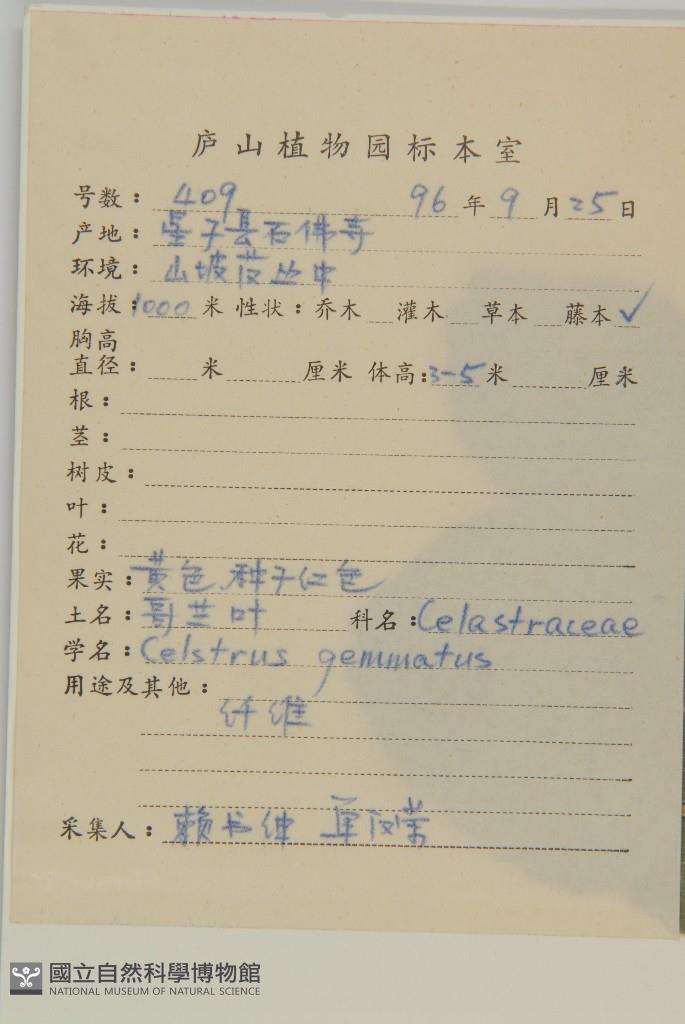 庐山植物园标本室
号数：409 96年9月25日
产地：星子县石佛寺
环境：山坡 丛中
海拔：1000米 性状：乔木 灌木 草本 藤本✓
胸高
直径： 米 厘米 体高：3-5米 厘米
根：
茎：
树皮：
叶：
花：
果实：黄色,种子仁色
土名：哥兰叶 科名：Celastraceae
学名：Celstrus gemmatus
用途及其他：
纤维
采集人：赖书绅
國立自然科學博物館
NATIONAL MUSEUM OF NATURAL SCIENCE